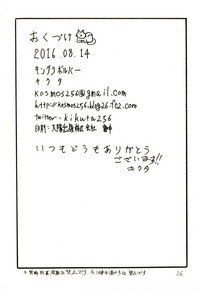 おくづけ
2016.08.14
キングリボルバー
キクタ
kosmos256@gmail.com
http://kosmos256.blog26.fc2.com
twitter→kikuta256
印刷:大陽出版株式会社
いつもどうもありがとう
ございます!!
キクタ
26